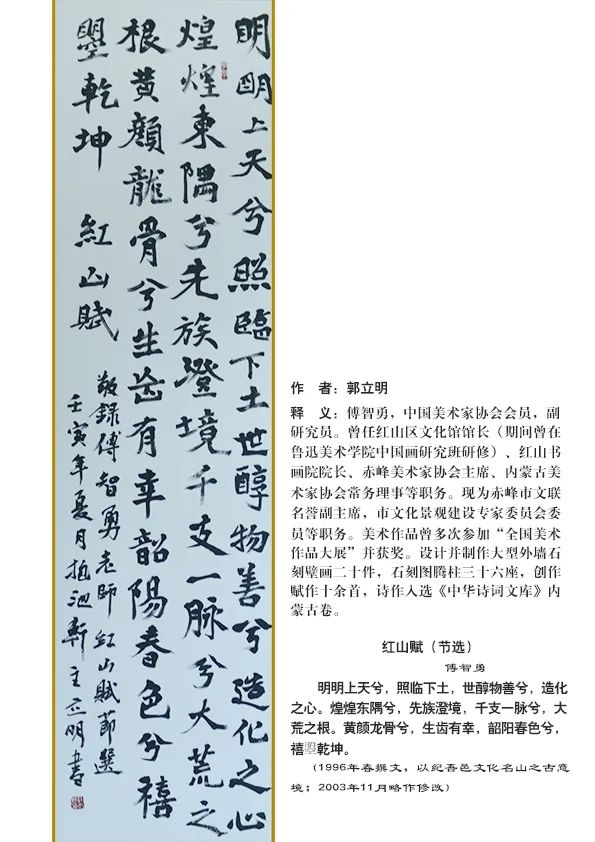 明明上天兮照臨下土世醇物善兮造化之心
煌煌東隅兮先族澄境千支一脉兮大荒之
根黄顔龍骨兮生齿有幸韶陽春色兮禧
曌乾坤 紅山賦
敬録傅智勇老師紅山賦節選
壬寅年夏月軒主立明書
作 者：郭立明
释 义：傅智勇，中国美术家协会会员，副
研究员。曾任红山区文化馆馆长（期间曾在
鲁迅美术学院中国画研究班研修）、红山书
画院院长、赤峰美术家协会主席、内蒙古美
术家协会常务理事等职务。现为赤峰市文联
名誉副主席，市文化景观建设专家委员会委
员等职务。美术作品曾多次参加“全国美术
作品大展”并获奖。设计并制作大型外墙石
刻壁画二十件，石刻图腾柱三十六座，创作
赋作十余首，诗作入选《中华诗词文库》内
蒙古卷。
红山赋（节选）
傅智勇
明明上天兮，照临下土，世醇物善兮，造化
之心。煌煌东隅兮，先族澄境，千支一脉兮，大
荒之根。黄颜龙骨兮，生齿有幸，韶阳春色兮，
禧乾坤。
（1996年春撰文，以纪吾邑文化名山之古意
境；2003年11月略作修改）